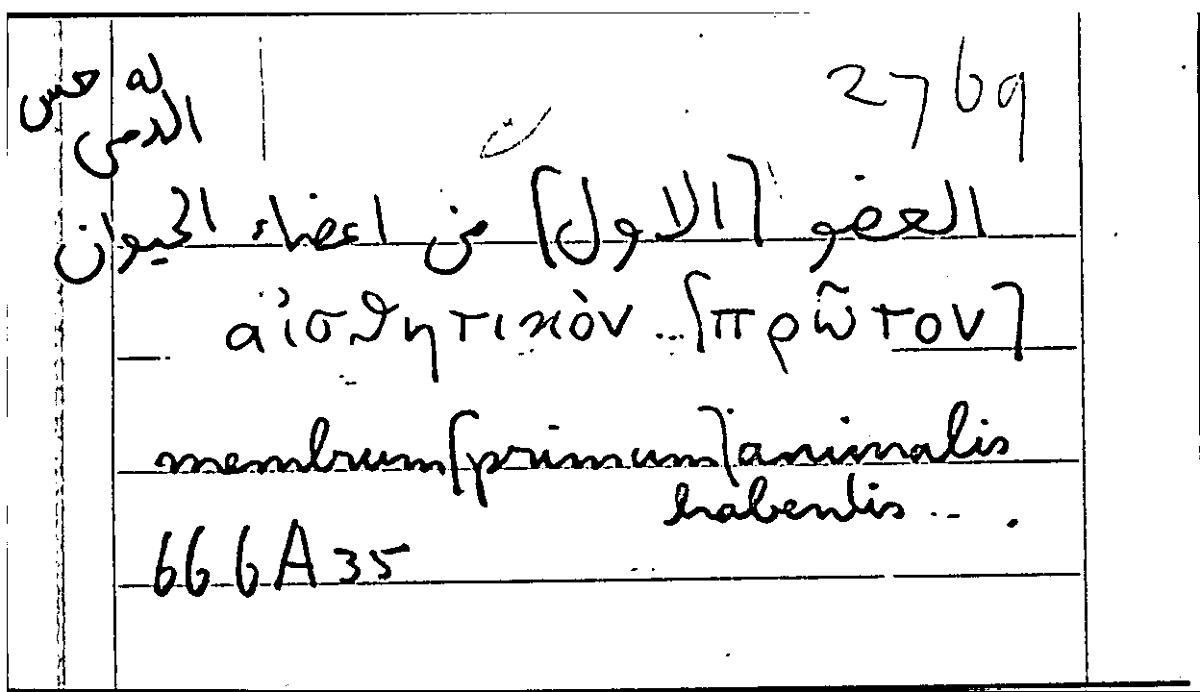 2769
له حس
الدمى
العضو [الاول] من اعضاء الحيوان
αἰσθητικὸν ... [πρῶτον]
membrum [primum] animalis
habentis ... .
666A35